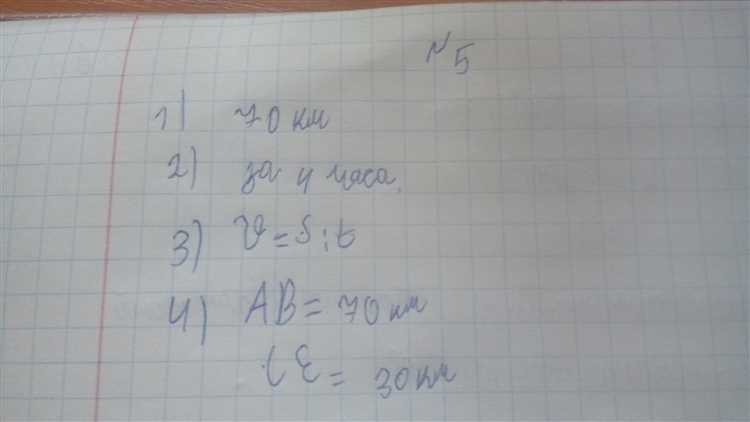 №5
1) 70 км
2) за 4 часа.
3) V = S : t
4) AB = 70 км
CE = 30 км